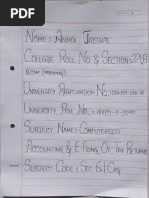 NAME: ANMOL JAISWAL
COLLEGE ROLL NO. & SECTION:
BCOM (MORNING)
UNIVERSITY REGISTRATION NO.:
UNIVERSITY ROLL NO.:
SUBJECT NAME: COMPUTERISED
ACCOUNTING & E-FILING OF TAX RETURNS
SUBJECT CODE: SEC 6.1 CHG